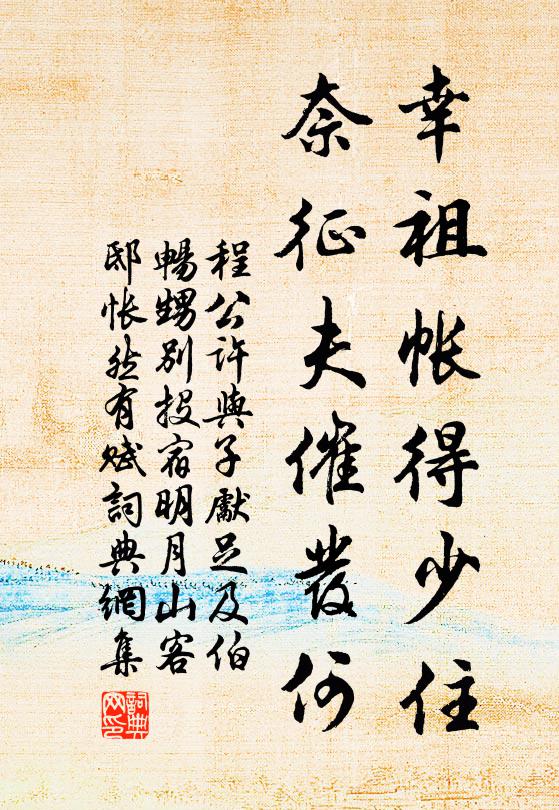 幸祖帐得少住
奈征夫催發何
程公许與子獻足及伯
暢甥别投宿明月山客
邸怅然有赋詞典網集
詞典網印